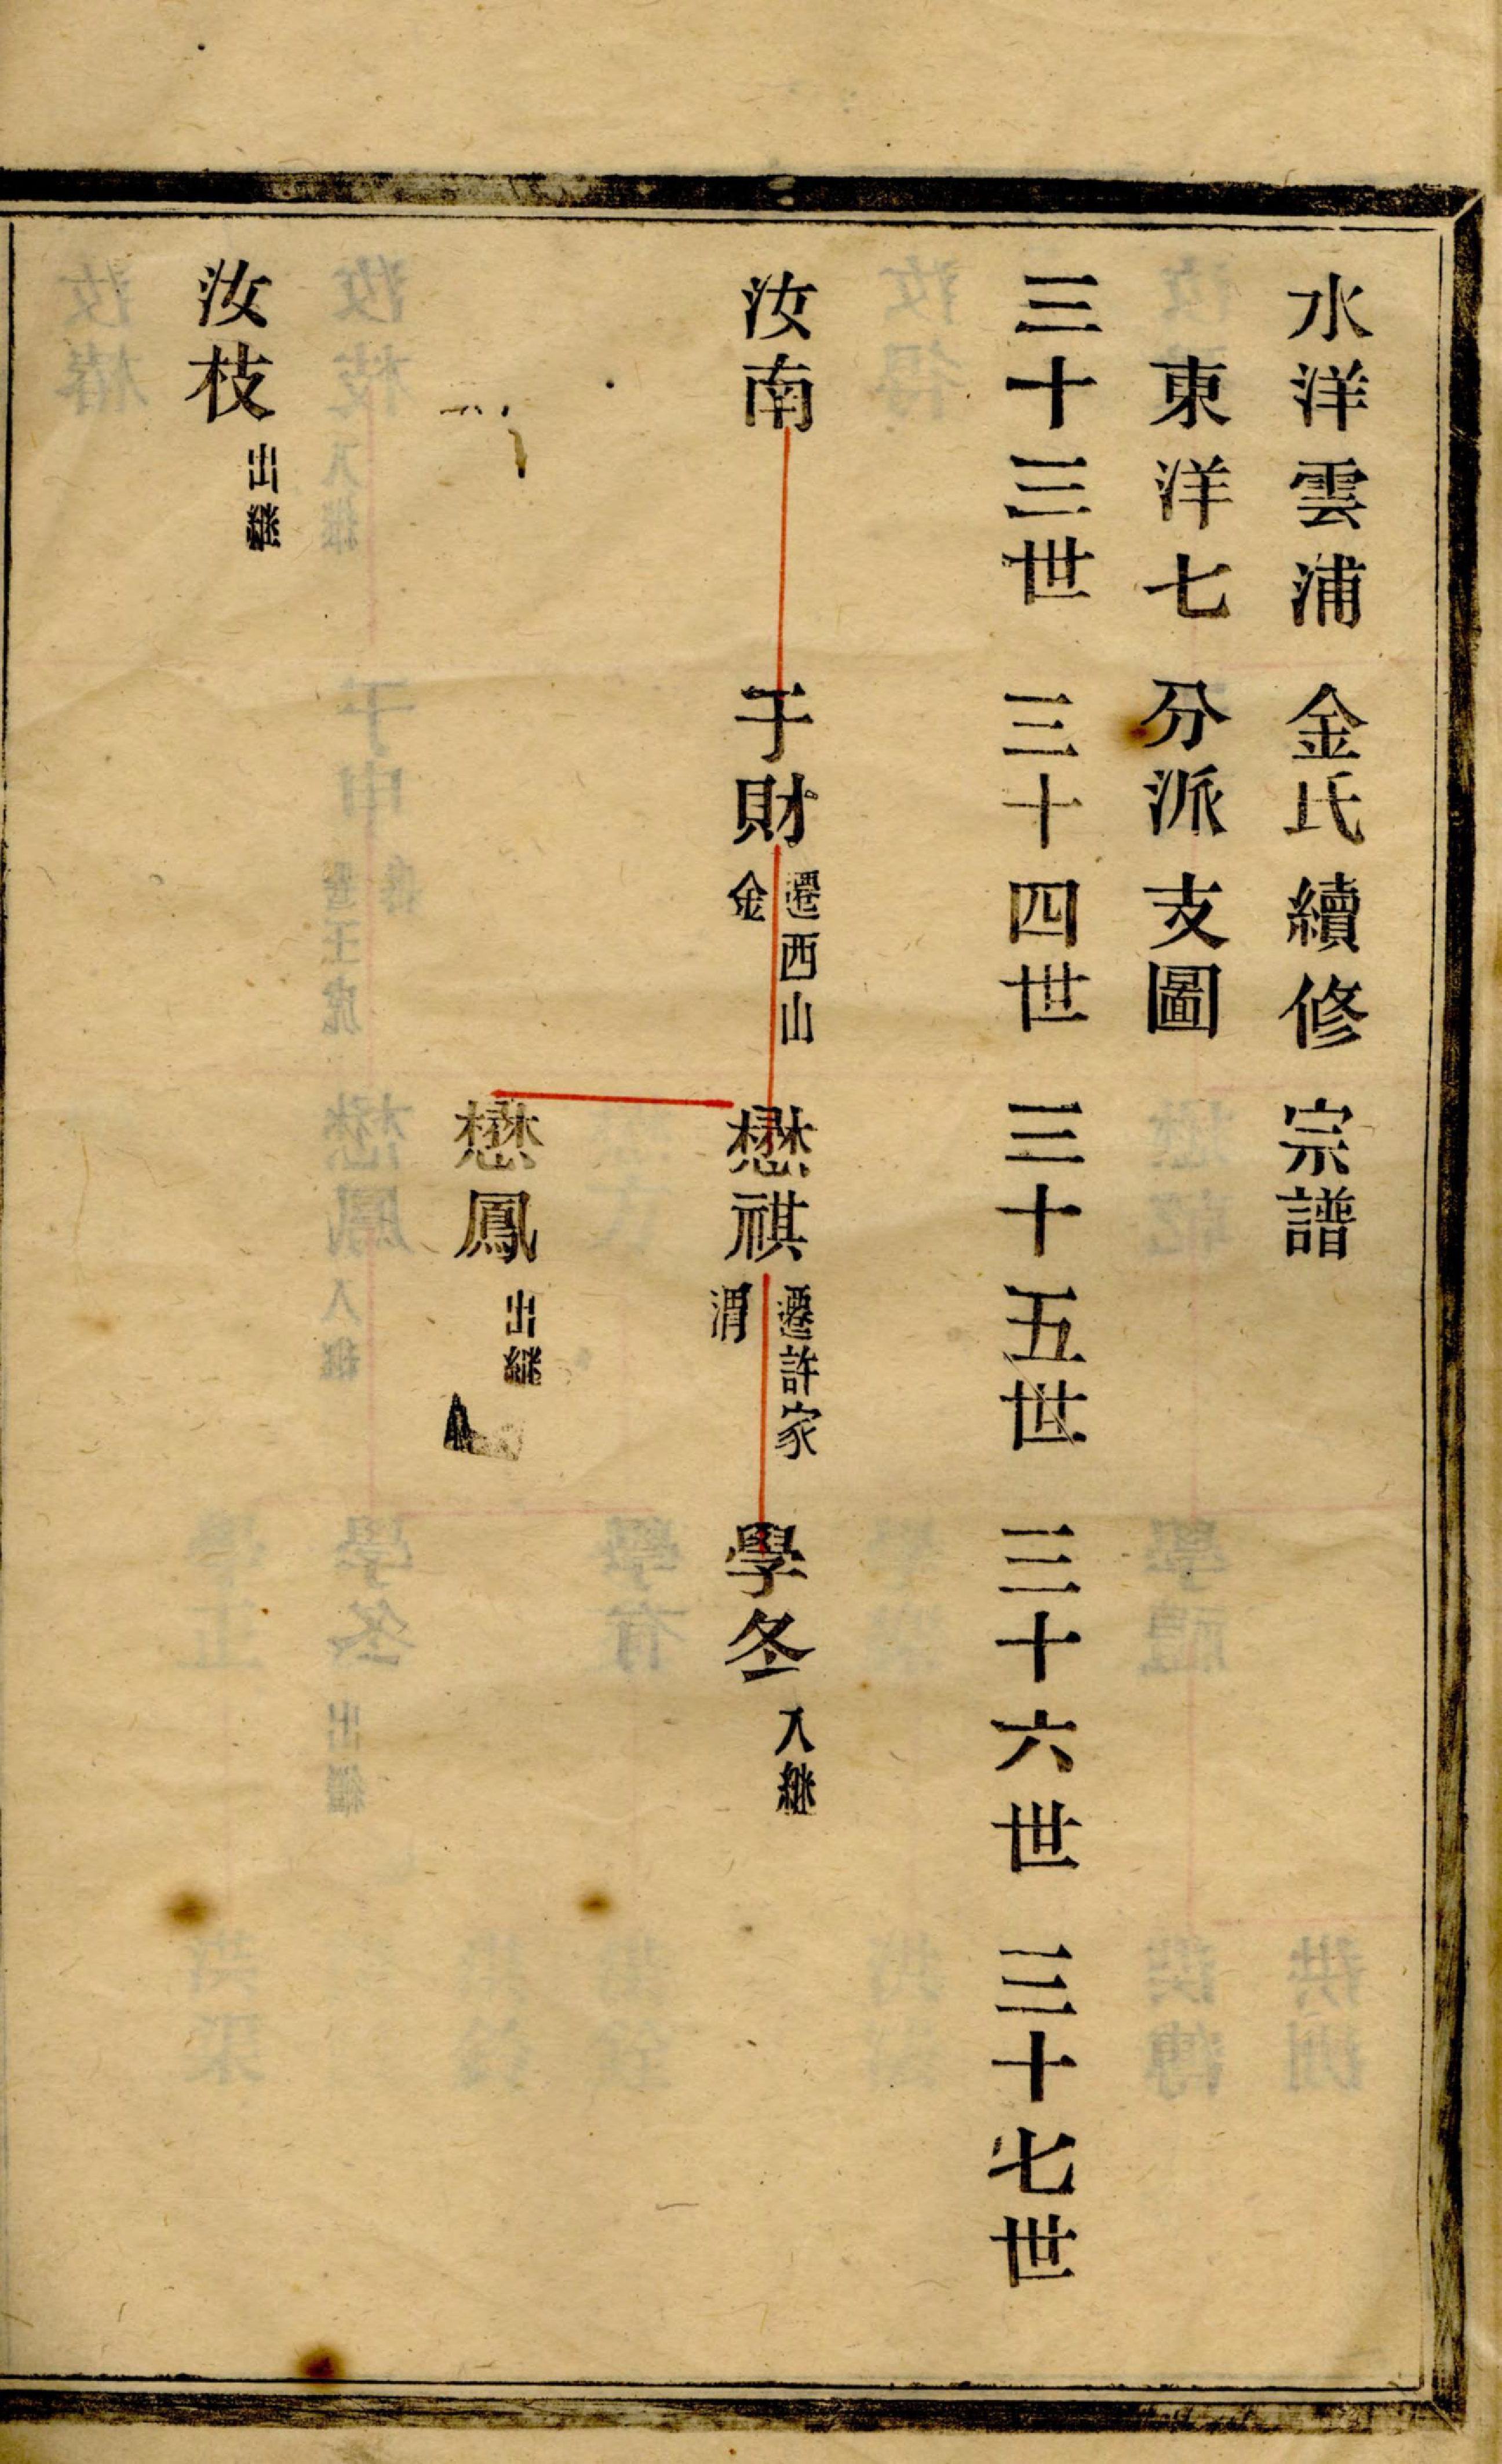 水洋雲浦金氏續修宗譜
東洋七分派支圖
三十三世 三十四世 三十五世 三十六世 三十七世
汝南 于財 遷西山金 懋祺 遷許家渭 學冬 入継
懋鳳 出継
汝枝 出繼